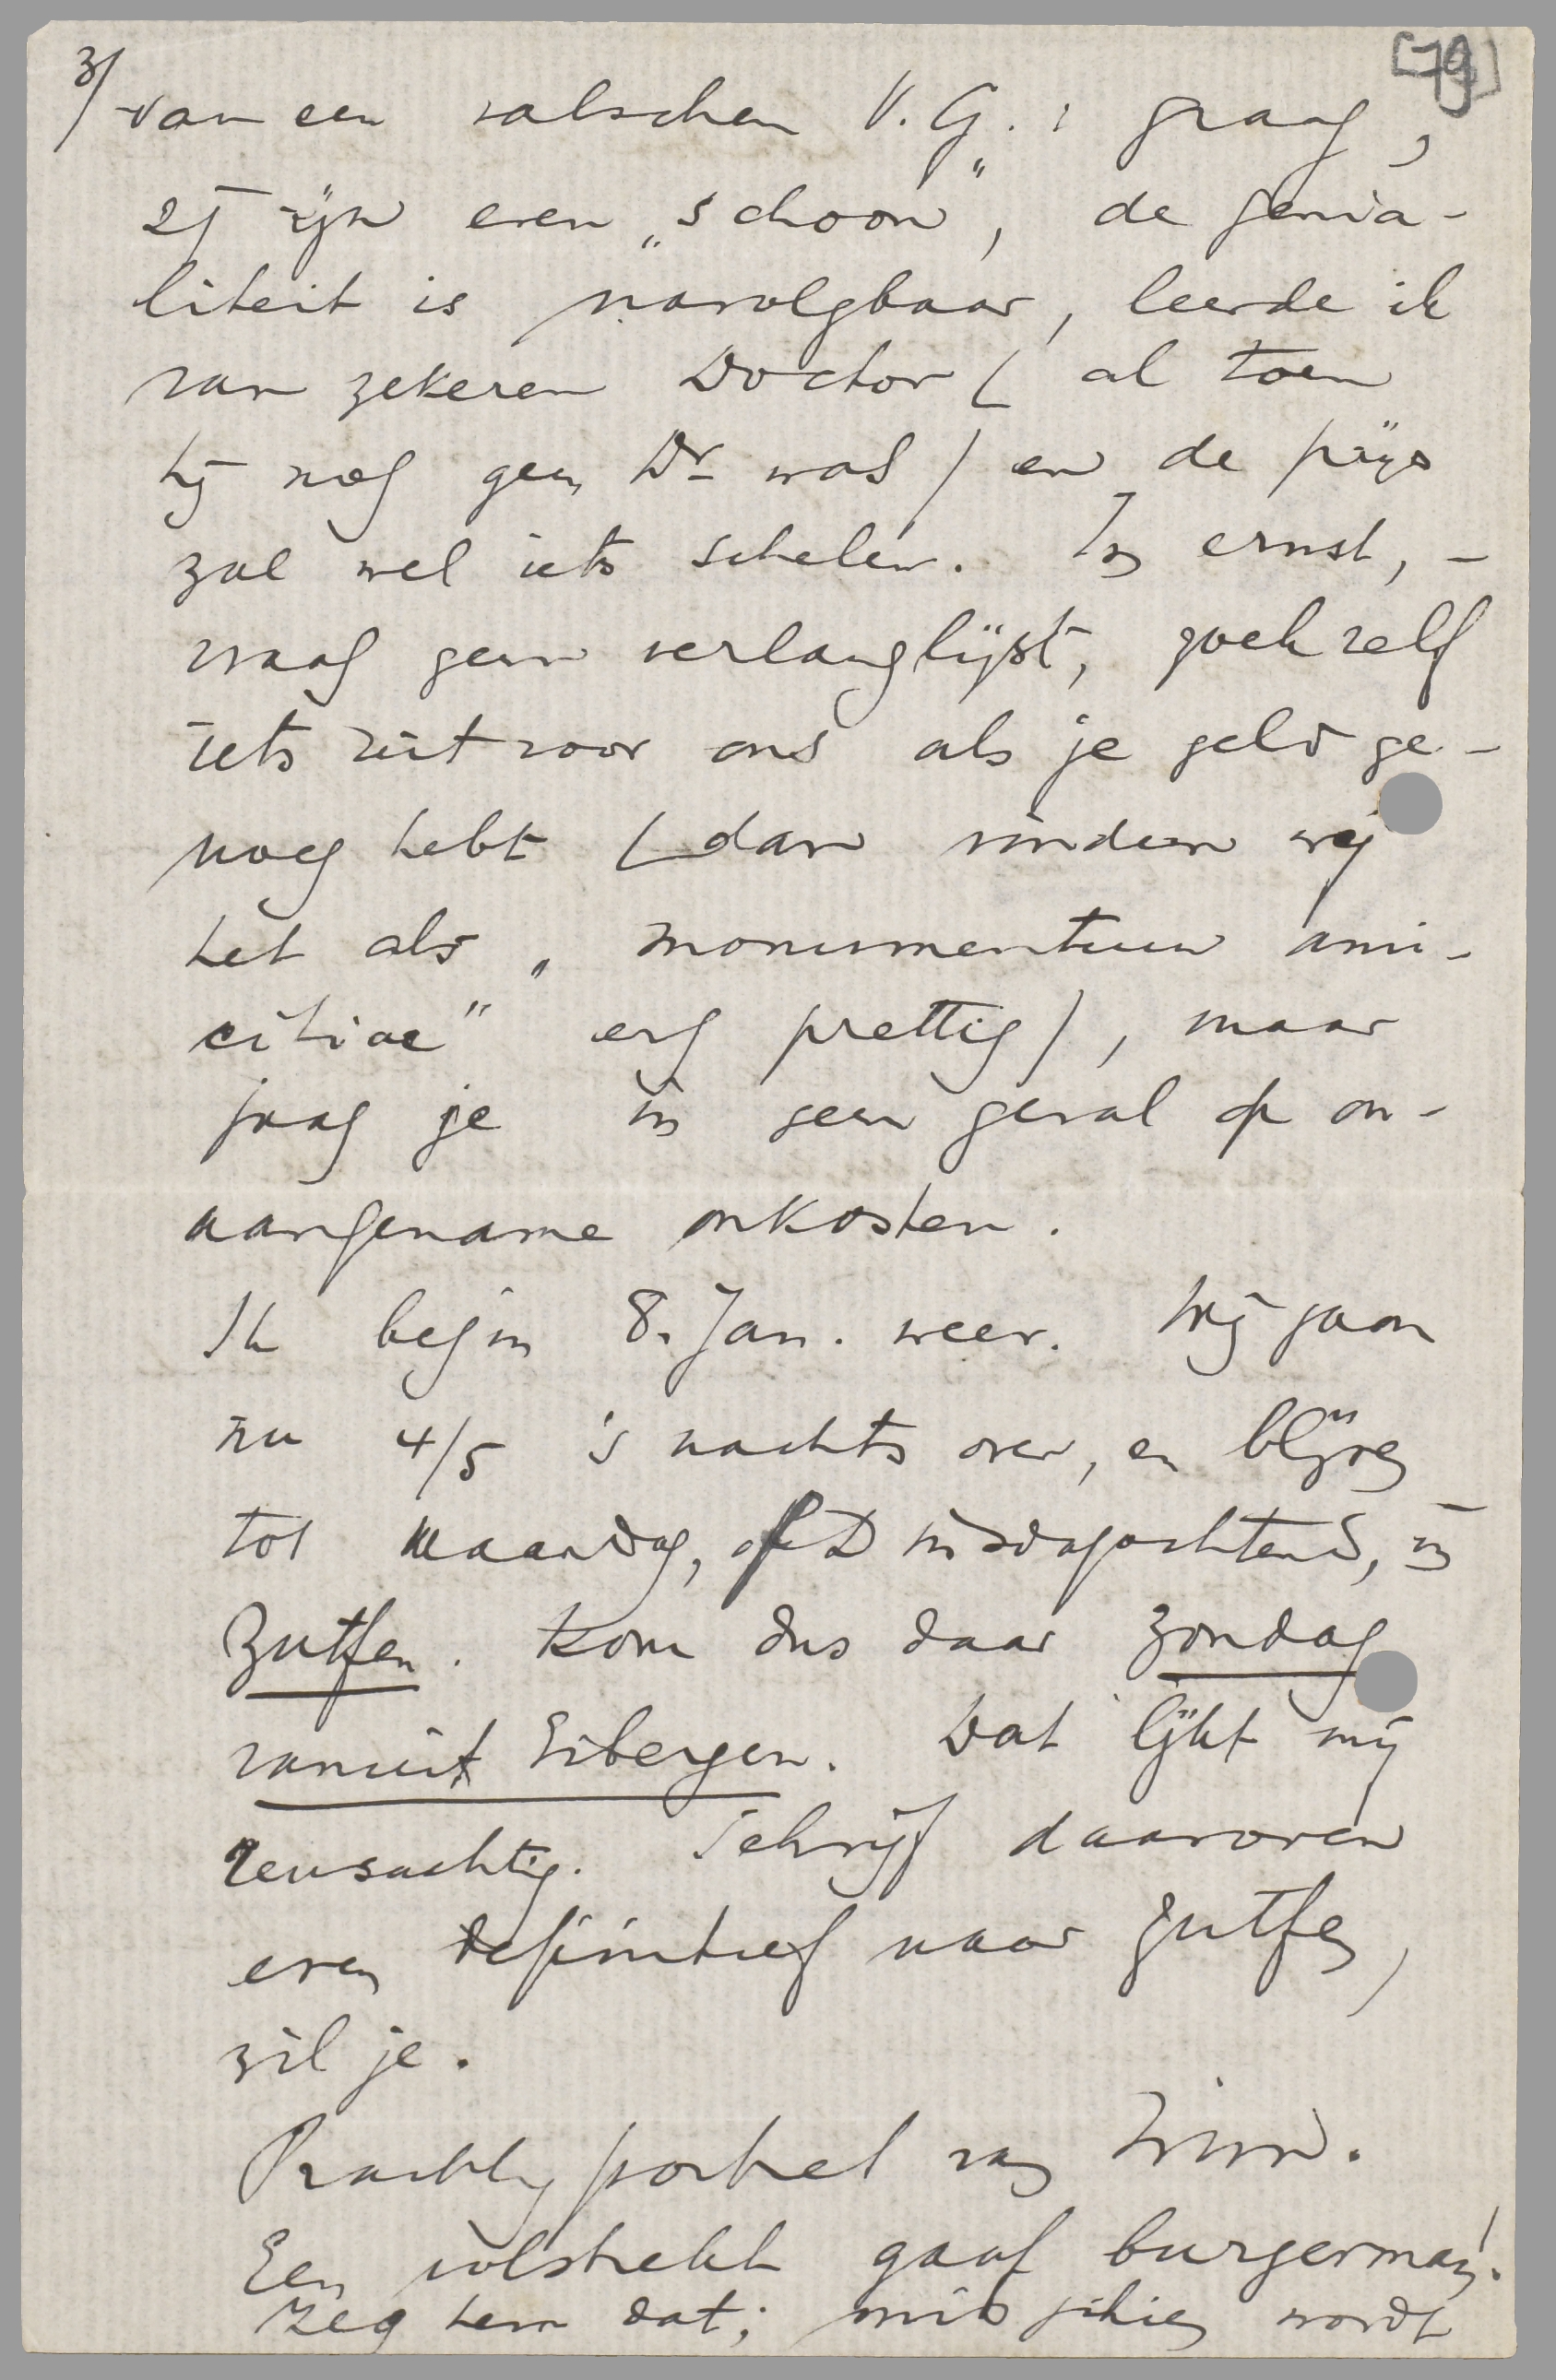 3/
[79]
van een valschen V.G.: graag,
zij zijn even „schoon", de genia-
liteit is navolgbaar, leerde ik
van zekeren Doctor (al toen
hij nog geen Dr was) en de prijs
zal wel iets schelen. In ernst, -
vraag geen verlanglijst, zoek zelf
iets uit voor ons als je geld ge-
noeg hebt (dan vinden wij
het als „monumentum ami-
citiae" erg prettig), maar
jaag je in geen geval op on-
aangename onkosten.
Ik begin 8. Jan. weer. Wij gaan
nu 4/5 's nachts over, en blijven
tot Maandag, of Dinsdagochtend, in
Zutfen. Kom dus daar zondag
vanuit Eibergen. Dat lijkt mij
reusachtig. Schrijf daarover
even definitief naar Zutfen,
wil je.
Prachtig portret van
Een volstrekt gaaf burgerman!
Zeg hem dat; misschien wordt